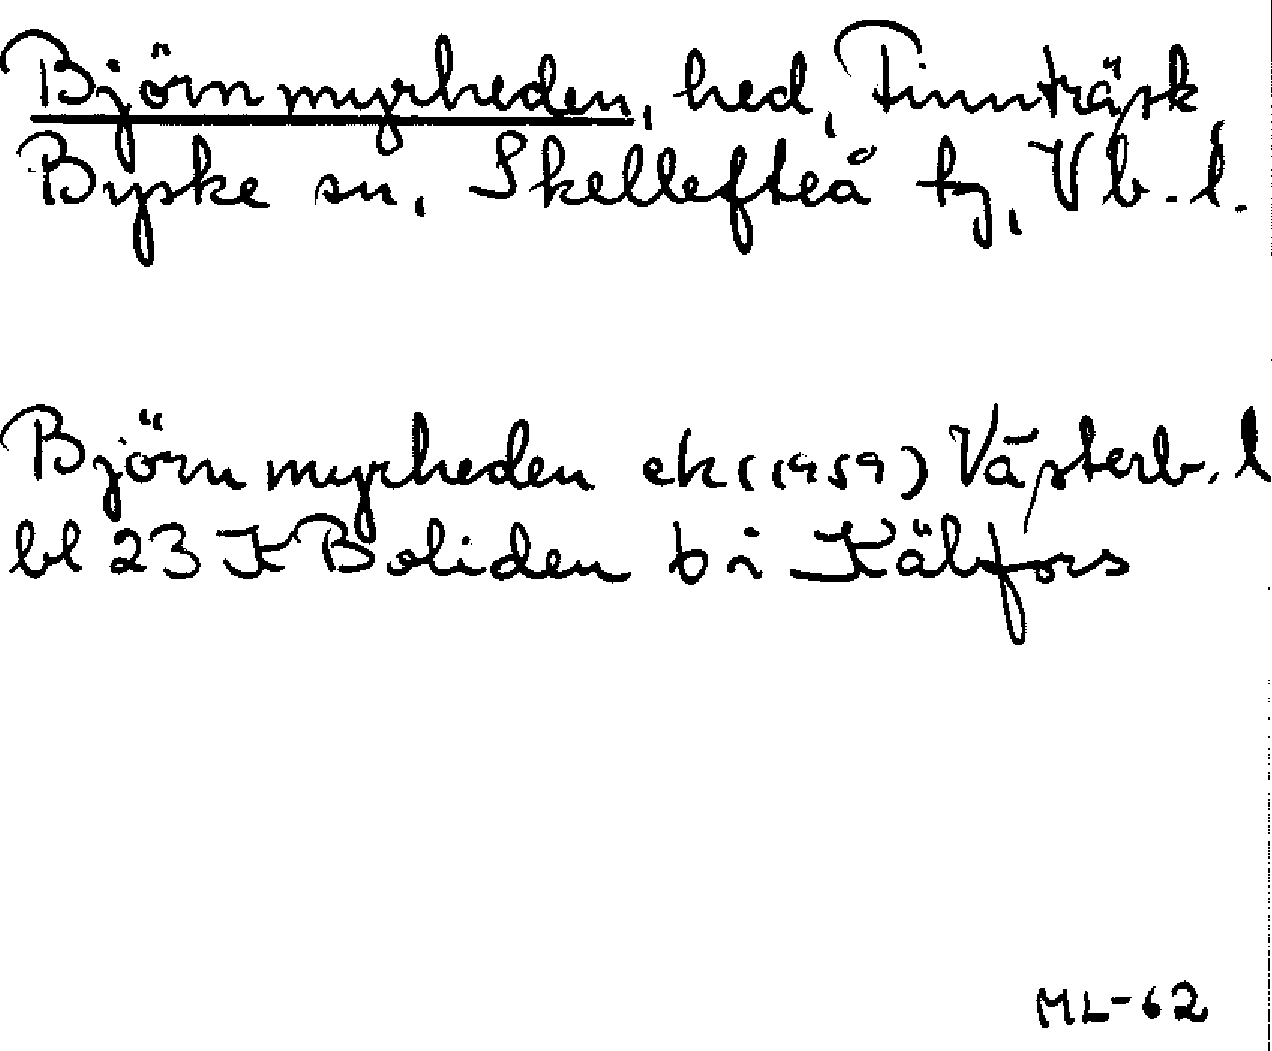 Björnmyrheden, hed, Finnträsk
Byske sn, Skellefteå tg, Vb. l.
Björnmyrheden ek (1959) Västerb. l
bl 23 K Boliden bi Källfors
ML-62